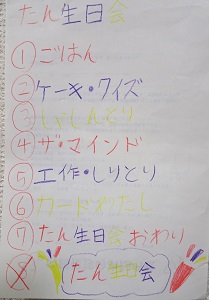 たん生日会
①ごはん
②ケーキ・クイズ
③しゃしんとり
④ザ・マインド
⑤工作・しりとり
⑥カードわたし
⑦たん生日会おわり
たん生日会